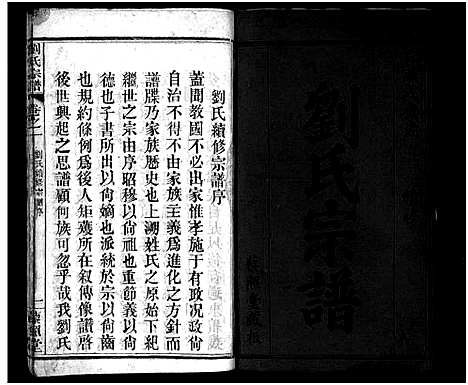 劉氏宗譜
劉氏續修宗譜序
蓋聞教國不必出家惟孝施于有政况政尙
自治不得不由家族主義爲進化之方針而
譜牒乃家族歷史也上溯姓氏之原始下紀
繼世之宗由序昭穆以尙祖也重節義以尙
德也子書所出以尙嫡也派統於宗以尙齒
也規約條例爲後人矩矱所在叙傳像譜啓
後世興起之思譜顧何族可忽乎哉我劉氏
劉氏宗譜
卷之二
劉氏續修宗譜序
一